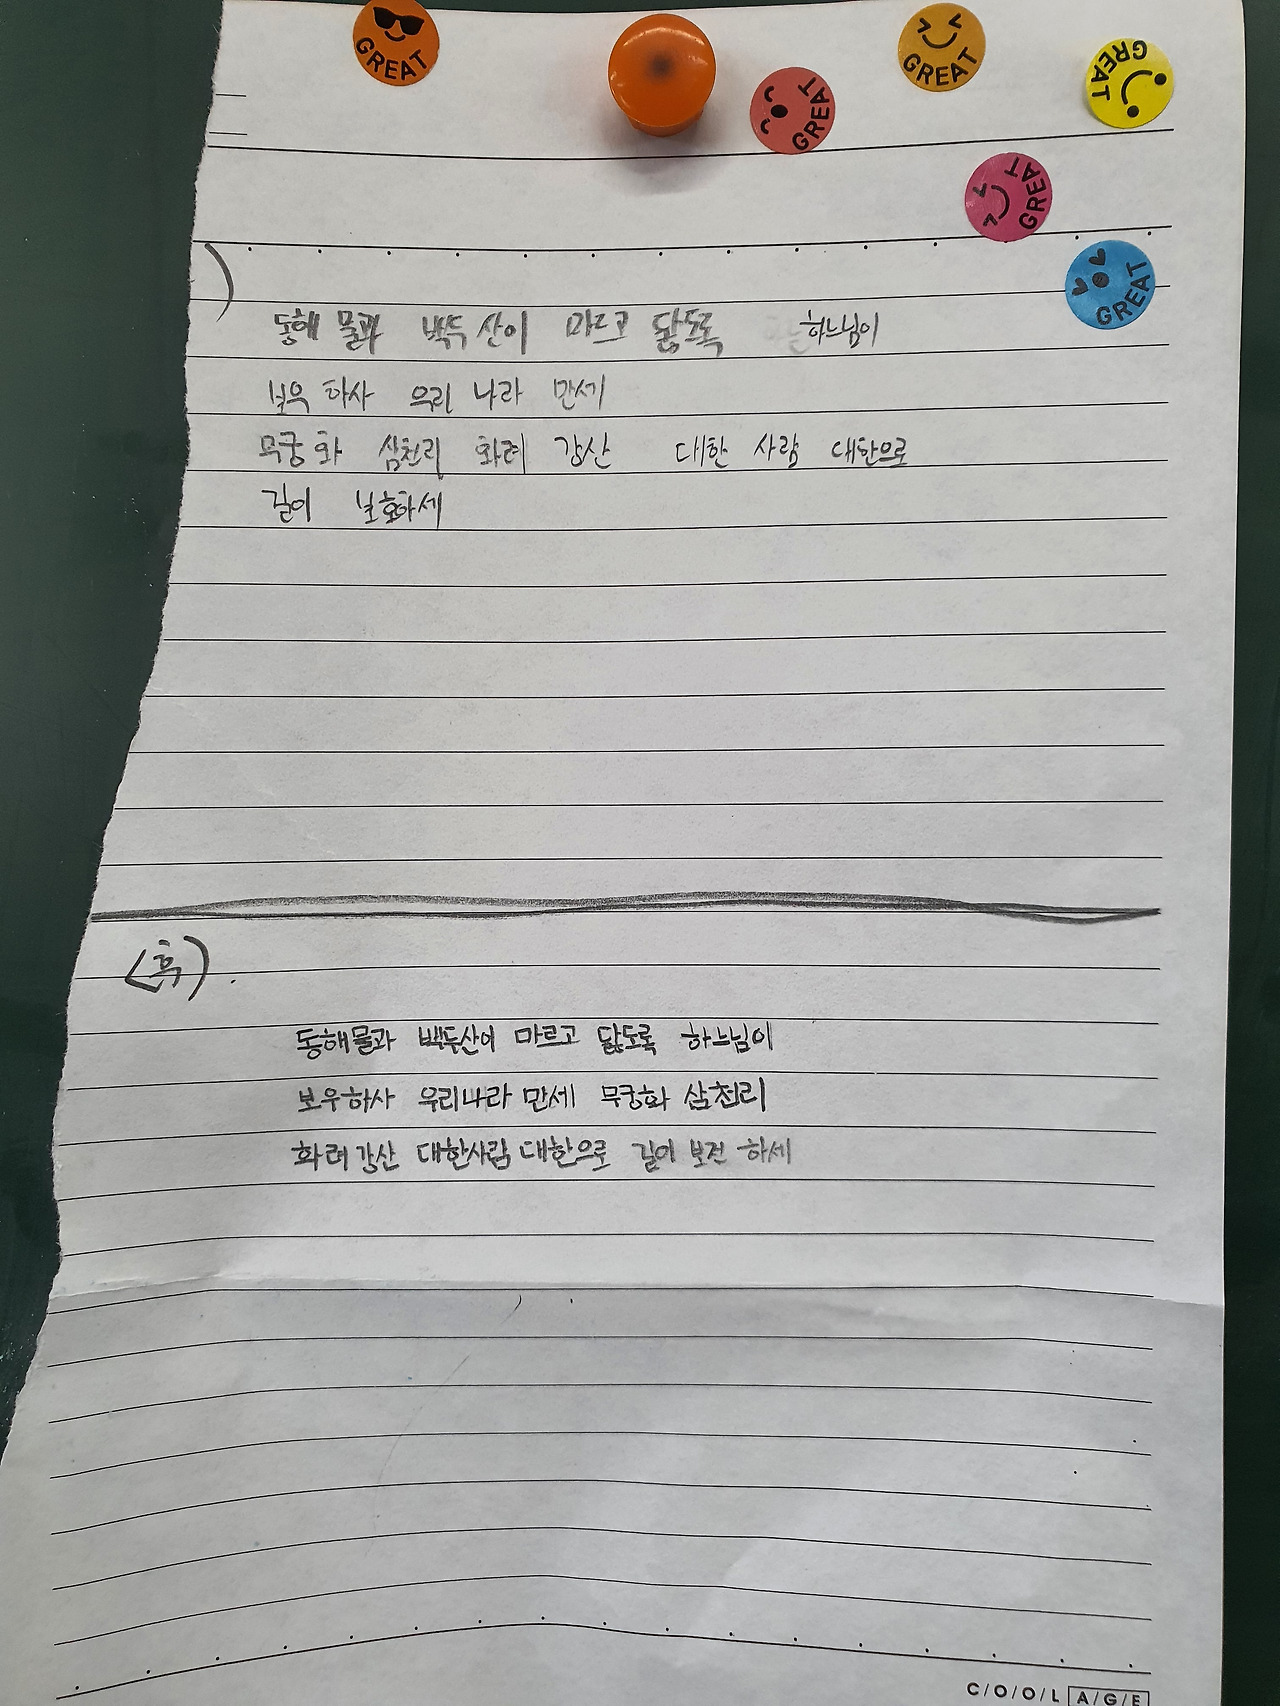 GREAT
GREAT
GREAT
GREAT
GREAT
GREAT
)
동해 물과 백두 산이 마르고 닳도록 하느님이
보우 하사 우리 나라 만세
무궁 화 삼천리 화려 강산 대한 사람 대한으로
길이 보호하세
<후>.
동해물과 백두산이 마르고 닳도록 하느님이
보우하사 우리나라 만세 무궁화 삼천리
화려강산 대한사람 대한으로 길이 보전 하세
C/O/O/L A/G/E